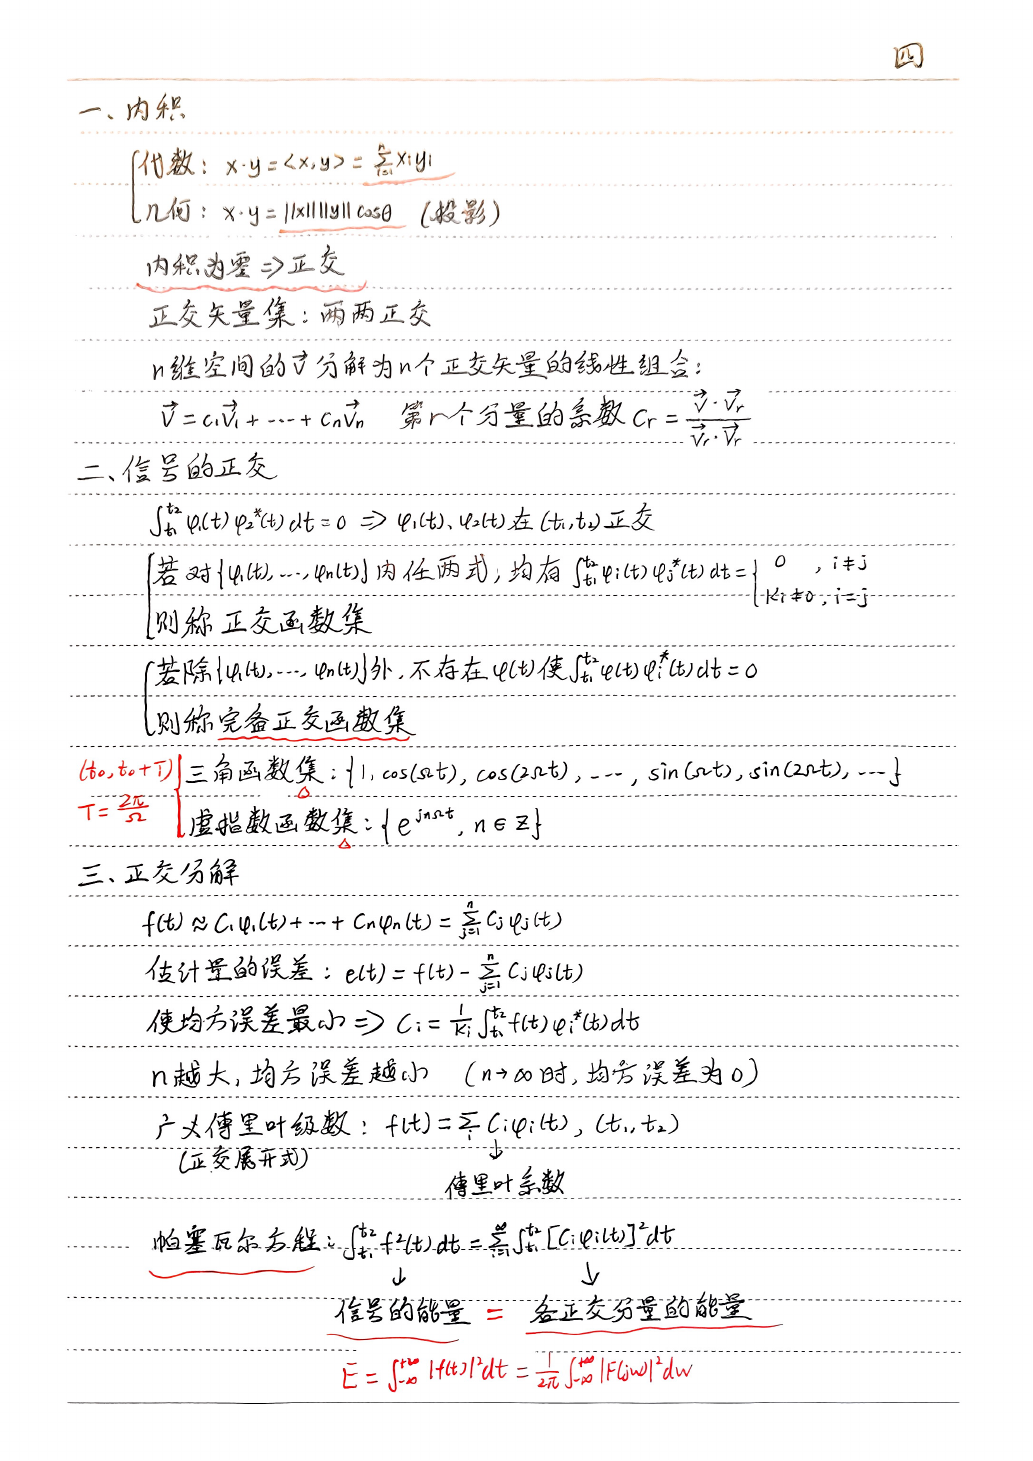 四
一、内积
代数: x·y=<x,y>=∑_{i=1}^{n}x_iy_i
几何: x·y=||x||||y||cosθ (投影)
内积为零⇒正交
正交矢量集:两两正交
n维空间的V⃗分解为n个正交矢量的线性组合:
V⃗=c₁V⃗₁+…+cₙV⃗ₙ 第r个分量的系数Cr=(V⃗·V⃗r)/(V⃗r·V⃗r)
二、信号的正交
∫_{t₁}^{t₂}φ₁(t)φ₂*(t)dt=0 ⇒ φ₁(t)、φ₂(t)在(t₁,t₂)正交
若对{φ₁(t),…,φn(t)}内任两式,均有∫_{t₁}^{t₂}φi(t)φj*(t)dt={0 , i≠j
Ki≠0, i=j
则称正交函数集
若除{φ₁(t),…,φn(t)}外,不存在φ(t)使∫_{t₁}^{t₂}φ(t)φi*(t)dt=0
则称完备正交函数集
(t₀,t₀+T) 三角函数集:{1,cos(Ωt),cos(2Ωt),…,sin(Ωt),sin(2Ωt),…}
T=2π/Ω 虚指数函数集:{e^{jnΩt}, n∈Z}
三、正交分解
f(t)≈C₁φ₁(t)+…+Cnφn(t)=∑_{j=1}^{n}Cjφj(t)
估计量的误差: e(t)=f(t)-∑_{j=1}^{n}Cjφj(t)
使均方误差最小⇒Ci=1/Ki ∫_{t₁}^{t₂}f(t)φi*(t)dt
n越大,均方误差越小 (n→∞时,均方误差为0)
广义傅里叶级数: f(t)=∑_{i}Ciφi(t), (t₁,t₂)
(正交展开式) ↓
傅里叶系数
帕塞瓦尔方程:∫_{t₁}^{t₂}f²(t)dt=∑_{i=1}^{∞}∫_{t₁}^{t₂}[Ciφi(t)]²dt
↓ ↓
信号的能量 = 各正交分量的能量
E=∫_{-∞}^{+∞}|f(t)|²dt=1/2π ∫_{-∞}^{+∞}|F(jw)|²dw